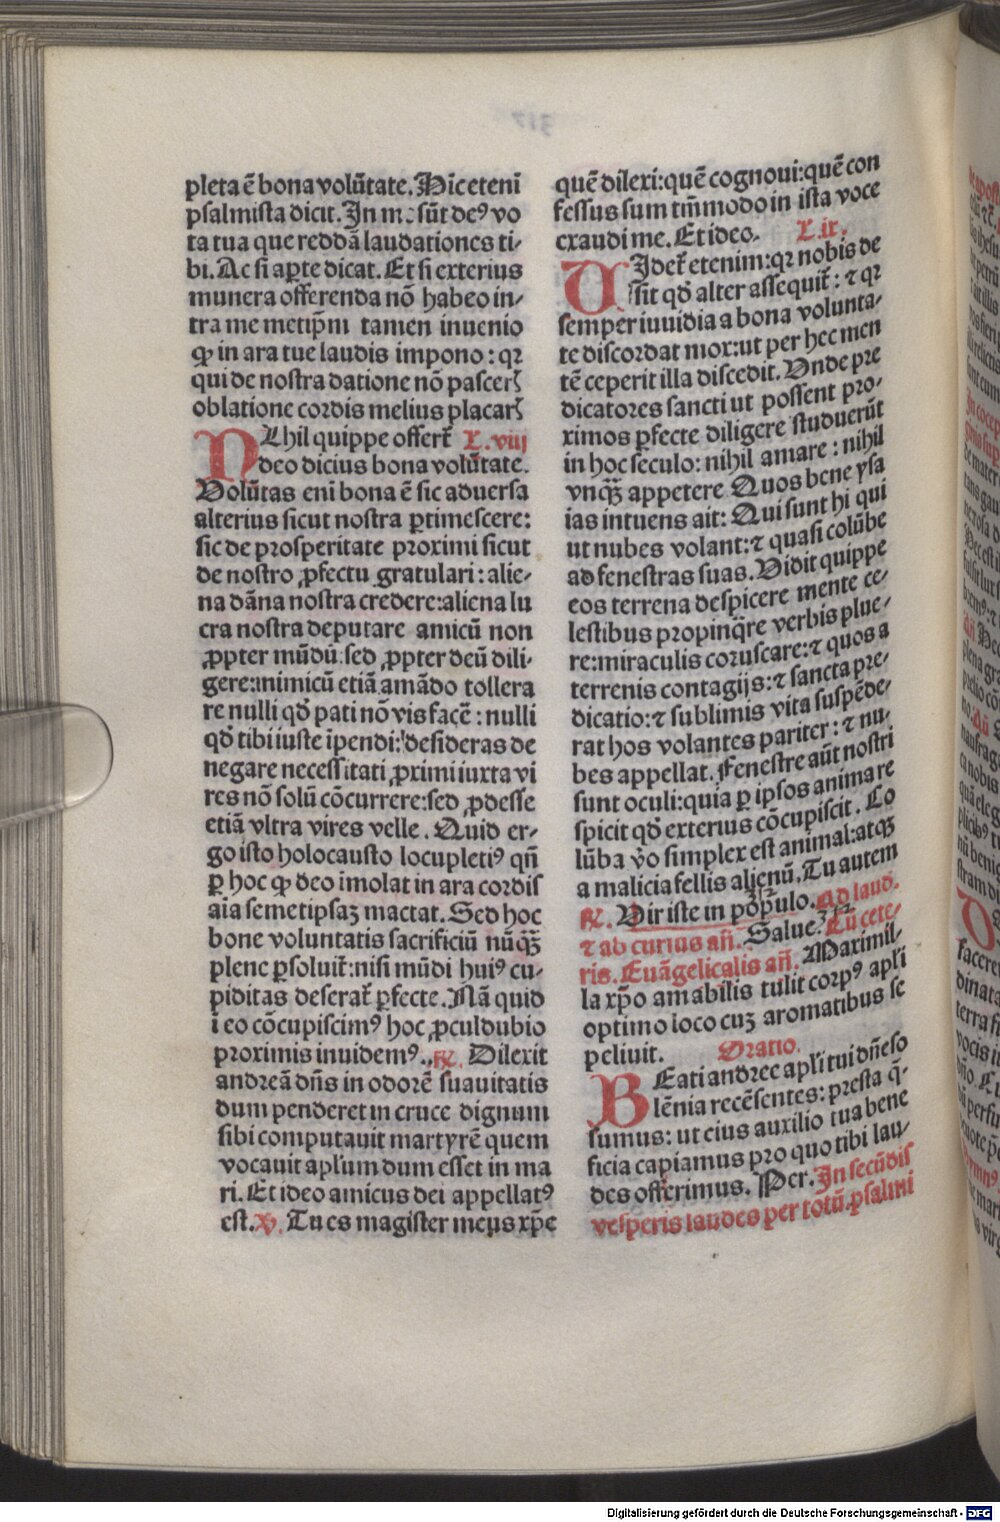 pleta ē bona volūtate. Hic etenī
psalmista dicit. In me sūt deꝰ vo
ta tua que reddā laudationes ti-
bi. Ac si aꝑte dicat. Et si exterius
munera offerenda nō habeo in-
tra me metip̄m tamen inuenio
ꝙ in ara tue laudis impono : qꝛ
qui de nostra datione nō pascerꝭ
oblatione cordis melius placarꝭ
NIhil quippe offert̄ L. viij
deo dicius bona volūtate.
Volūtas eni bona ē sic aduersa
alterius sicut nostra ꝑtimescere:
sic de prosperitate proximi sicut
de nostro ꝓfectu gratulari : alie-
na dāna nostra credere: aliena lu
cra nostra deputare amicū non
ꝓpter mūdū: sed ꝓpter deū dili-
gere: inimicū etiā amādo tollera
re nulli qd̄ pati nō vis facē : nulli
qd̄ tibi iuste īpendi: desideras de
negare necessitati ꝓximi iuxta vi
res nō solū cōcurrere: sed ꝓdesse
etiā vltra vires velle. Quid er-
go isto holocausto locupletiꝰ qn̄
ꝑ hoc ꝙ deo imolat in ara cordis
aīa semetipsaꝫ mactat. Sed hoc
bone voluntatis sacrificiū nūqꝫ̄
plene ꝑsoluit̄: nisi mūdi huiꝰ cu-
piditas deserat̄ ꝑfecte. Nā quid
ī eo cōcupiscimꝰ hoc ꝓculdubio
proximis inuidemꝰ. ℟. Dilexit
andreā dn̄s in odorē suauitatis
dum penderet in cruce dignum
sibi computauit martyrē quem
vocauit apl̄um dum esset in ma
ri. Et ideo amicus dei appellatꝰ
est. ℣. Tu es magister meus xp̄e
quē dilexi: quē cognoui: quē con
fessus sum tm̄modo in ista voce
exaudi me. Et ideo. L. ix.
VIdet̄ etenim: qꝛ nobis de
sit qd̄ alter assequit̄ : ⁊ qꝛ
semper iuuidia a bona volunta-
te discordat mox: ut per hec men
tē ceperit illa discedit. Vnde pre
dicatores sancti ut possent pro-
ximos ꝑfecte diligere studuerūt
in hoc seculo: nihil amare : nihil
vnqꝫ̄ appetere Quos bene ysa
ias intuens ait: Qui sunt hi qui
ut nubes volant: ⁊ quasi colūbe
ad fenestras suas. Vidit quippe
eos terrena despicere mente ce-
lestibus propinq̄re verbis plue-
re: miraculis coruscare: ⁊ quos a
terrenis contagijs: ⁊ sancta pre-
dicatio: ⁊ sublimis vita suspēde-
rat hos volantes pariter : ⁊ nu-
bes appellat. Fenestre aūt nostri
sunt oculi: quia ꝑ ipsos anima re
spicit qd̄ exterius cōcupiscit. Co
lūba v̄o simplex est animal: atqꝫ̄
a malicia fellis alienū. Tu autem
℟. Vir iste in pōpulo. Ad laud.
⁊ ab cursus an̄. Salue. Cū cete-
ris. Euāgelicalis an̄. Maximil-
la xp̄o amabilis tulit corpꝰ apl̄i
optimo loco cuꝫ aromatibus se
peliuit. Oratio.
BEati andree apl̄i tui dn̄e so
lēnia recēsentes: presta q̄-
sumus: ut eius auxilio tua bene
ficia capiamus pro quo tibi lau-
des offerimus. Per. In secūdis
vesperis laudes per totū. psalmi
Digitalisierung gefördert durch die Deutsche Forschungsgemeinschaft - DFG